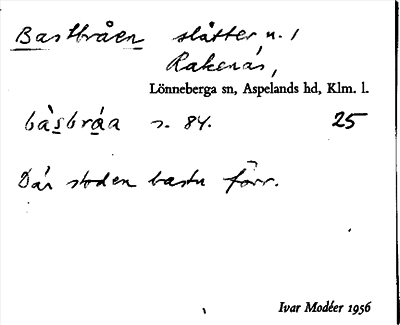 Bastbråen slåtter n. 1
Rakenäs,
Lönneberga sn, Aspelands hd, Klm. l.
bàsbra̱a s. 84. 25
Där stoden bastu förr.
Ivar Modéer 1956